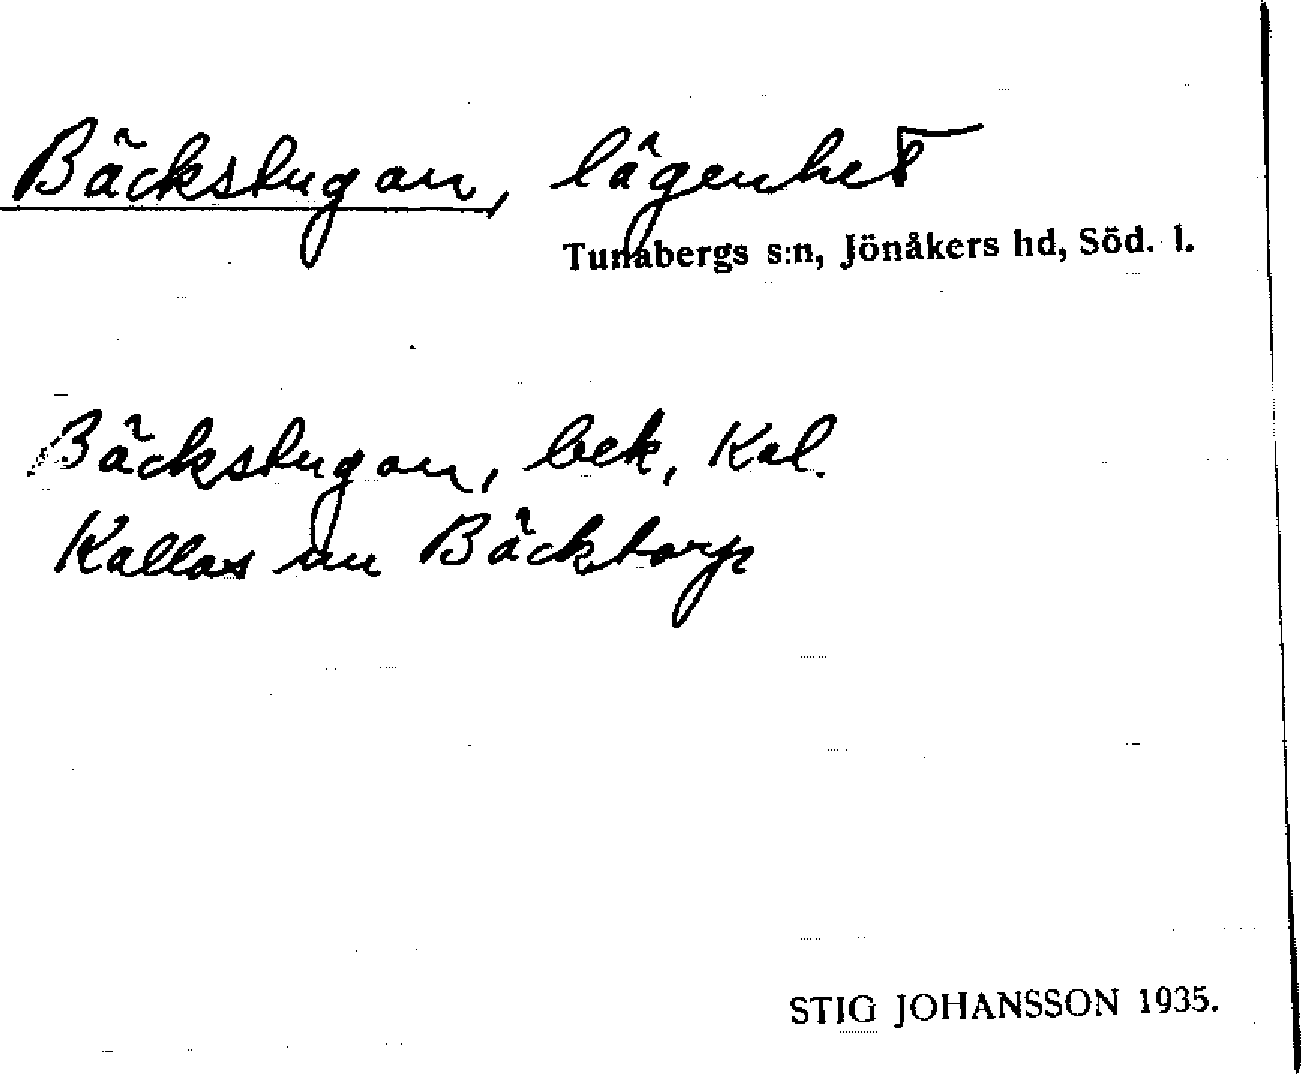 Bäckstugan, lägenhet
Tunabergs s:n, Jönåkers hd, Söd. l.
Bäckstugan, bek, Kal.
Kallas nu Bäcktorp
STIG JOHANSSON 1935.